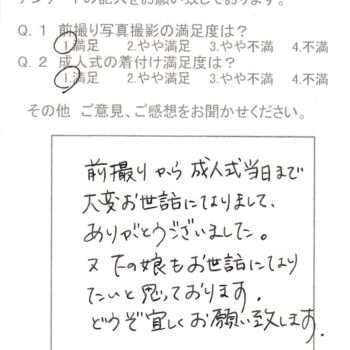 アンケートの記入をお願い致しております。
Q.1 前撮り写真撮影の満足度は?
1.満足 2.やや満足 3.やや不満 4.不満
Q.2 成人式の着付け満足度は?
1.満足 2.やや満足 3.やや不満 4.不満
その他 ご意見、ご感想をお聞かせください。
前撮りから成人式当日まで
大変お世話になりまして、
ありがとうございました。
又下の娘もお世話になり
たいと思っております。
どうぞ宜しくお願い致します。